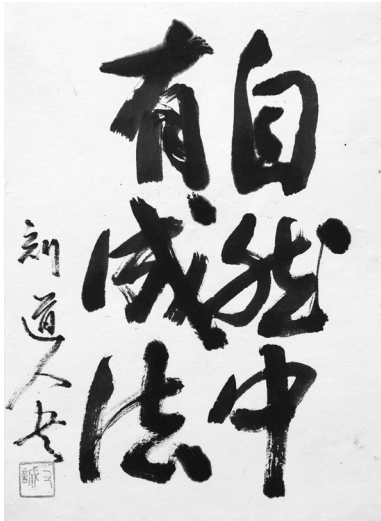 自然中
有成法
道人书